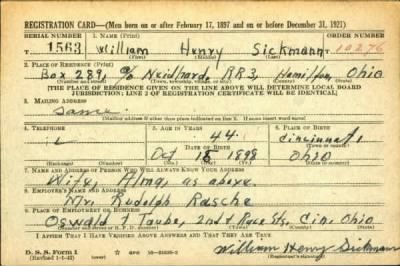 REGISTRATION CARD—(Men born on or after February 17, 1897 and on or before December 31, 1921)
SERIAL NUMBER 1. NAME (Print) ORDER NUMBER
1563 William Henry Sickmann 10276
(First) (Middle) (Last)
2. PLACE OF RESIDENCE (Print)
Box 289, % Neidhard, RR3, Hamilton, Ohio
(Number and street) (Town, township, village, or city) (County) (State)
[THE PLACE OF RESIDENCE GIVEN ON THE LINE ABOVE WILL DETERMINE LOCAL BOARD
JURISDICTION; LINE 2 OF REGISTRATION CERTIFICATE WILL BE IDENTICAL]
3. MAILING ADDRESS
Same
[Mailing address if other than place indicated on line 2. If same insert word same]
4. TELEPHONE 5. AGE IN YEARS 6. PLACE OF BIRTH
44 Cincinnati
DATE OF BIRTH (Town or county)
Oct 18 1898 Ohio
(Exchange) (Number) (Mo.) (Day) (Yr.) (State or country)
7. NAME AND ADDRESS OF PERSON WHO WILL ALWAYS KNOW YOUR ADDRESS
Wife, Alma, as above.
8. EMPLOYER'S NAME AND ADDRESS
Mr. Rudolph Rasche
9. PLACE OF EMPLOYMENT OR BUSINESS
Oswald & Taube, 2nd & Race Sts, Cin, Ohio
(Number and street or R. F. D. number) (Town) (County) (State)
I AFFIRM THAT I HAVE VERIFIED ABOVE ANSWERS AND THAT THEY ARE TRUE
D. S. S. Form 1
(Revised 1-1-42) (over)
William Henry Sickmann